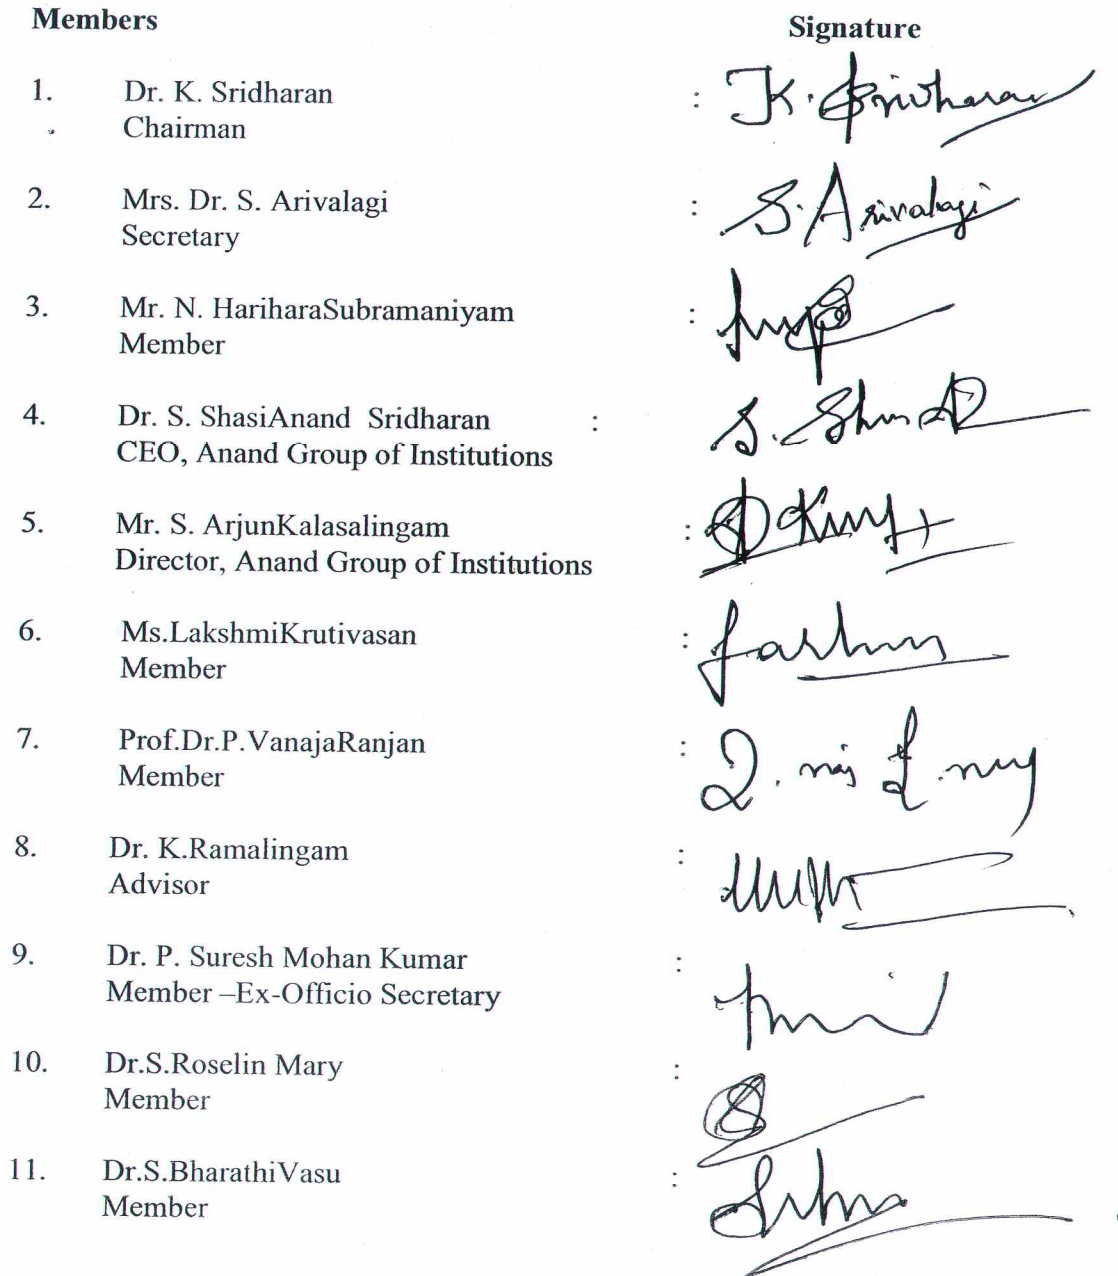 Members Signature
1. Dr. K. Sridharan : K. Sridharan
Chairman
2. Mrs. Dr. S. Arivalagi : S. Arivalagi
Secretary
3. Mr. N. HariharaSubramaniyam :
Member
4. Dr. S. ShasiAnand Sridharan :
CEO, Anand Group of Institutions
5. Mr. S. ArjunKalasalingam :
Director, Anand Group of Institutions
6. Ms.LakshmiKrutivasan :
Member
7. Prof.Dr.P.VanajaRanjan :
Member
8. Dr. K.Ramalingam :
Advisor
9. Dr. P. Suresh Mohan Kumar :
Member –Ex-Officio Secretary
10. Dr.S.Roselin Mary :
Member
11. Dr.S.BharathiVasu :
Member